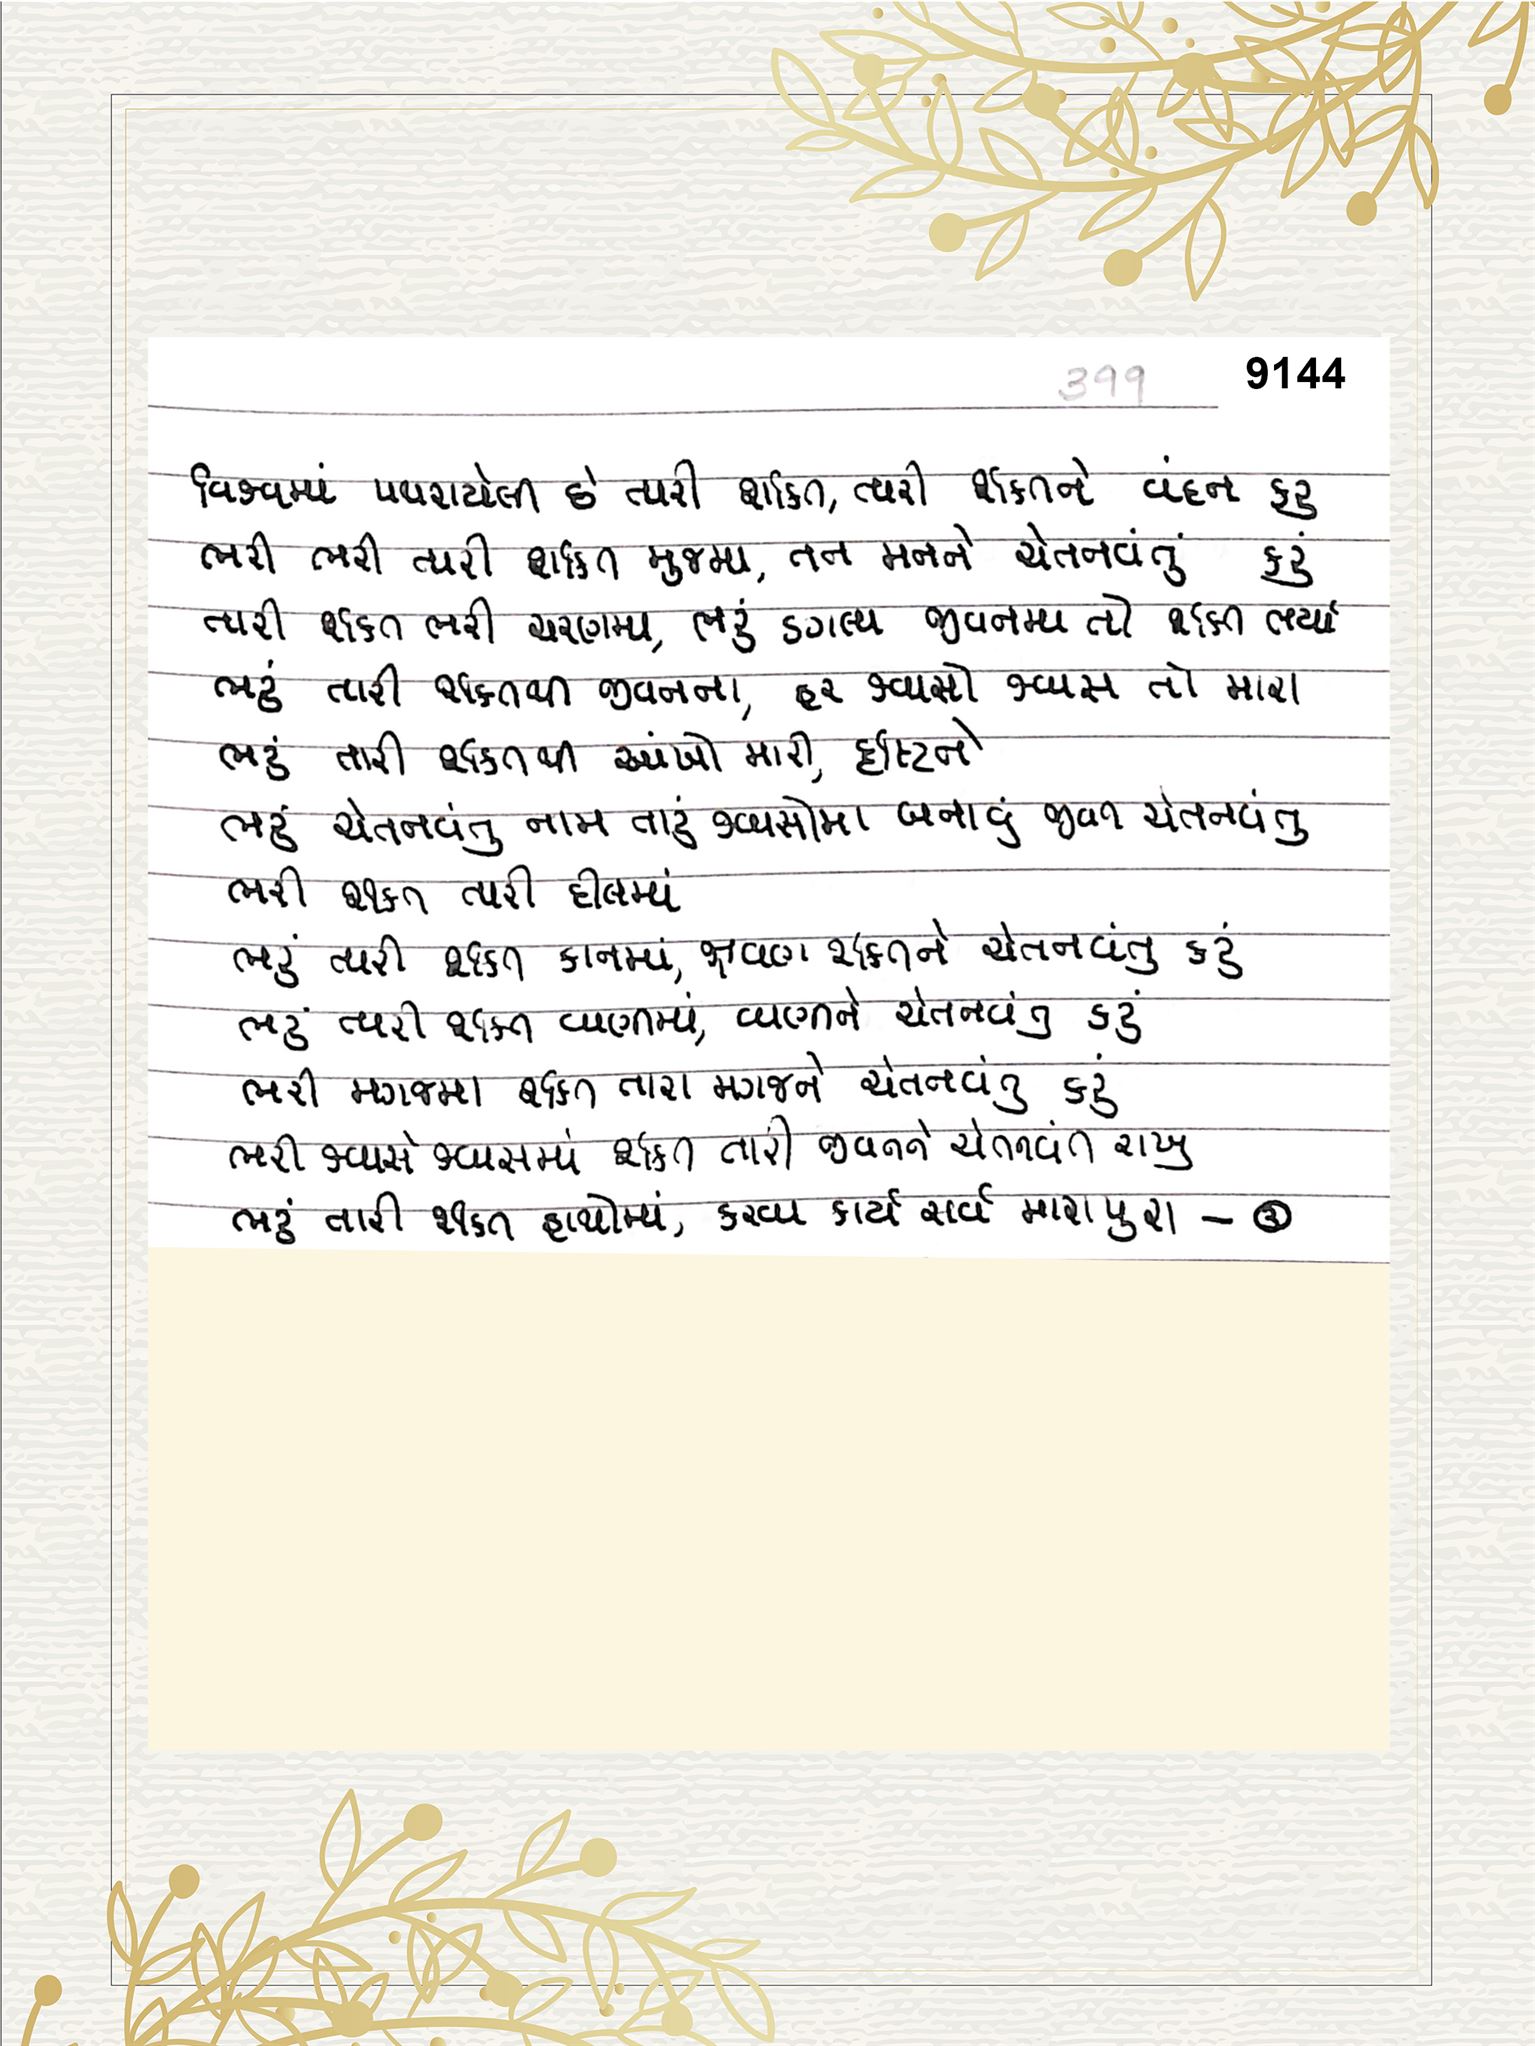 399 9144
વિશ્વમાં પથરાયેલી છે તારી શક્તિ, તારી શક્તિને વંદન કરુ
ભરી ભરી તારી શક્તિ મુજમા, તન મનને ચેતનવંતું કરું
તારી શક્તિ ભરી ચરણમા, ભરું ડગલા જીવનમા તો શક્તિ ભર્યા
ભરું તારી શક્તિથી જીવનના, હર શ્વાસો શ્વાસ તો મારા
ભરું તારી શક્તિથી આંખો મારી, દ્દષ્ટિને
ભરું ચેતનવંતુ નામ તારું શ્વાસોમા બનાવું જીવન ચેતનવંતુ
ભરી શક્તિ તારી દીલમાં
ભરું તારી શક્તિ કાનમાં, શ્રવણ શક્તિને ચેતનવંતુ કરું
ભરું તારી શક્તિ વાણીમાં, વાણીને ચેતનવંતુ કરું
ભરી મગજમા શક્તિ તારા મગજને ચેતનવંતુ કરું
ભરી શ્વાસે શ્વાસમાં શક્તિ તારી જીવનને ચેતનવંત રાખુ
ભરું તારી શક્તિ હાથોમાં, કરવા કાર્ય સર્વ મારા પુરા — ③